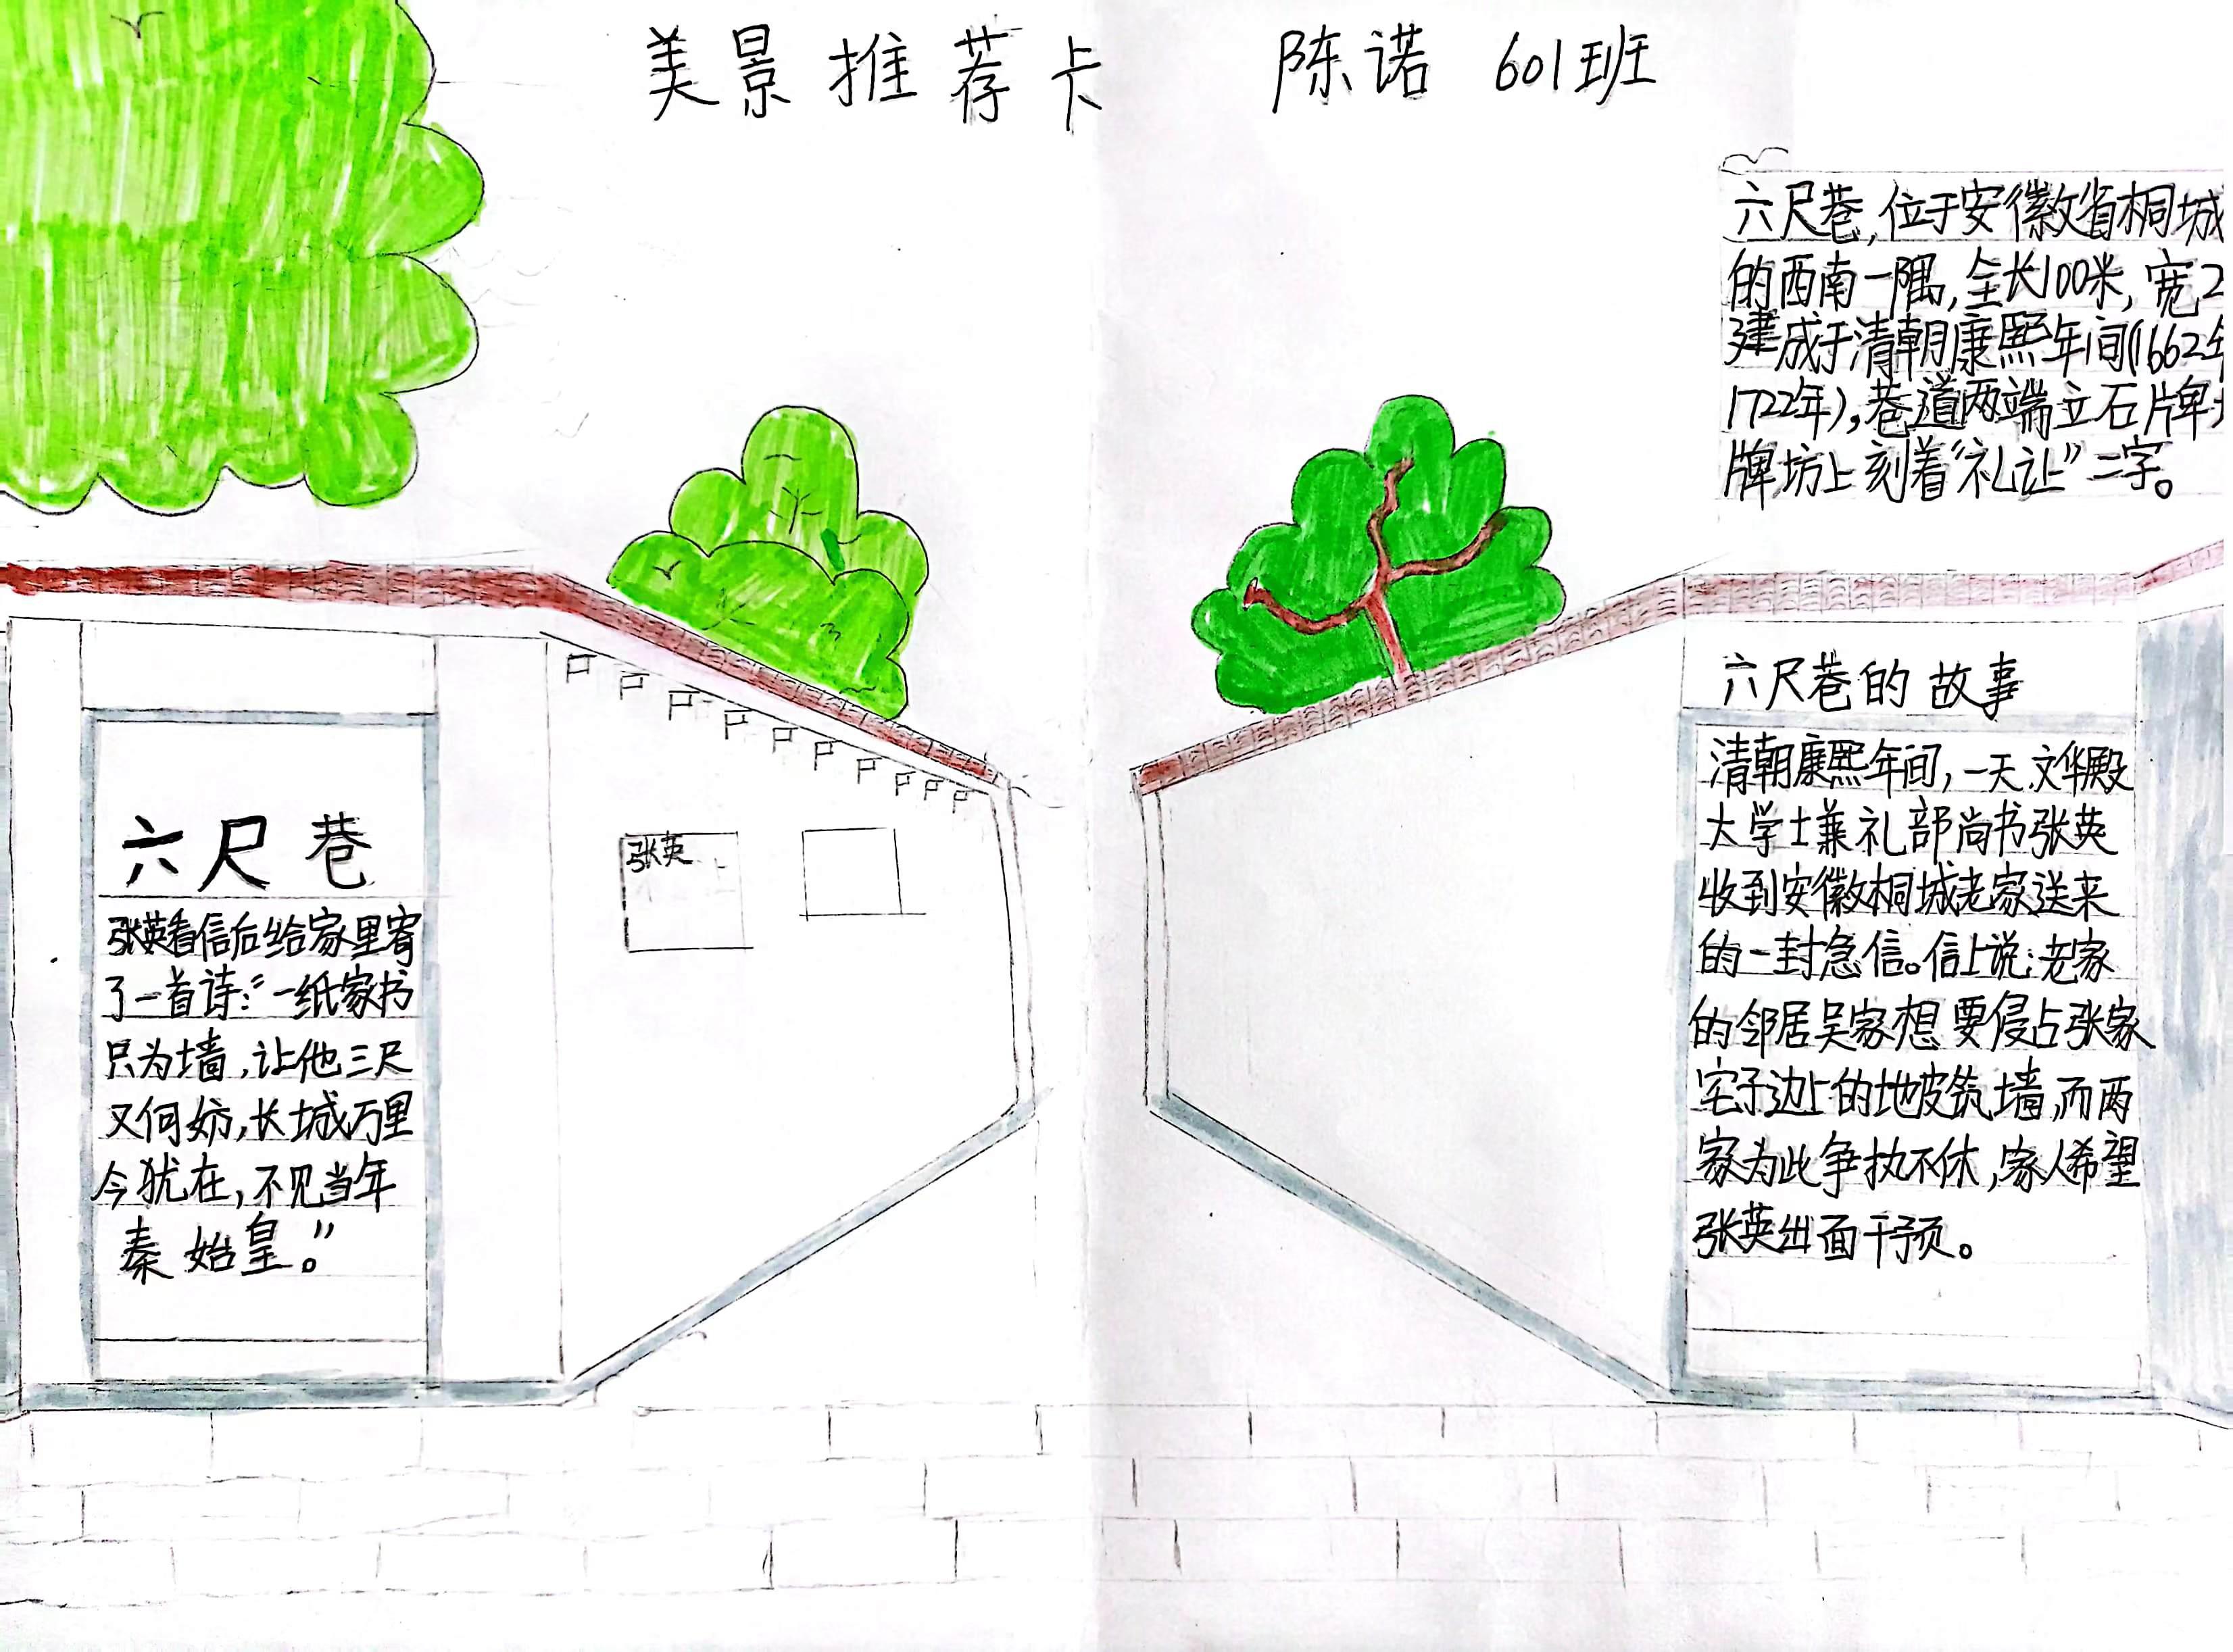 美景推荐卡 陈诺 601班
六尺巷,位于安徽省桐城
的西南一隅,全长100米,宽2
建成于清朝康熙年间(1662年
1722年),巷道两端立石牌
牌坊上刻着“礼让”二字。
六尺巷的故事
清朝康熙年间,一天.文华殿
大学士兼礼部尚书张英
收到安徽桐城老家送来
的一封急信。信上说:老家
的邻居吴家想要侵占张家
宅子边上的地皮筑墙,而两
家为此争执不休,家人希望
张英出面干预。
张英
六尺巷
张英看信后给家里寄
了一首诗:“一纸家书
只为墙,让他三尺
又何妨,长城万里
今犹在,不见当年
秦始皇。”